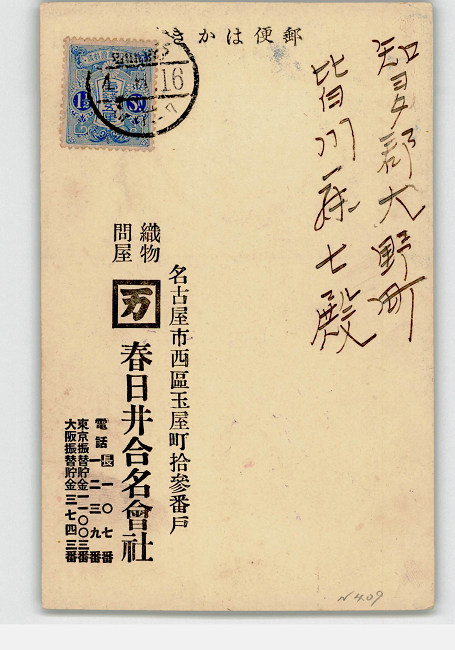 郵便はかき
知多郡大野町
皆川
七殿
織物
問屋
万
名古屋市西區玉屋町拾參番戶
春日井合名會社
電話 長 一〇七番
一二三九番
東京振替貯金一一〇〇三番
大阪振替貯金三七四三番
4
16
N409